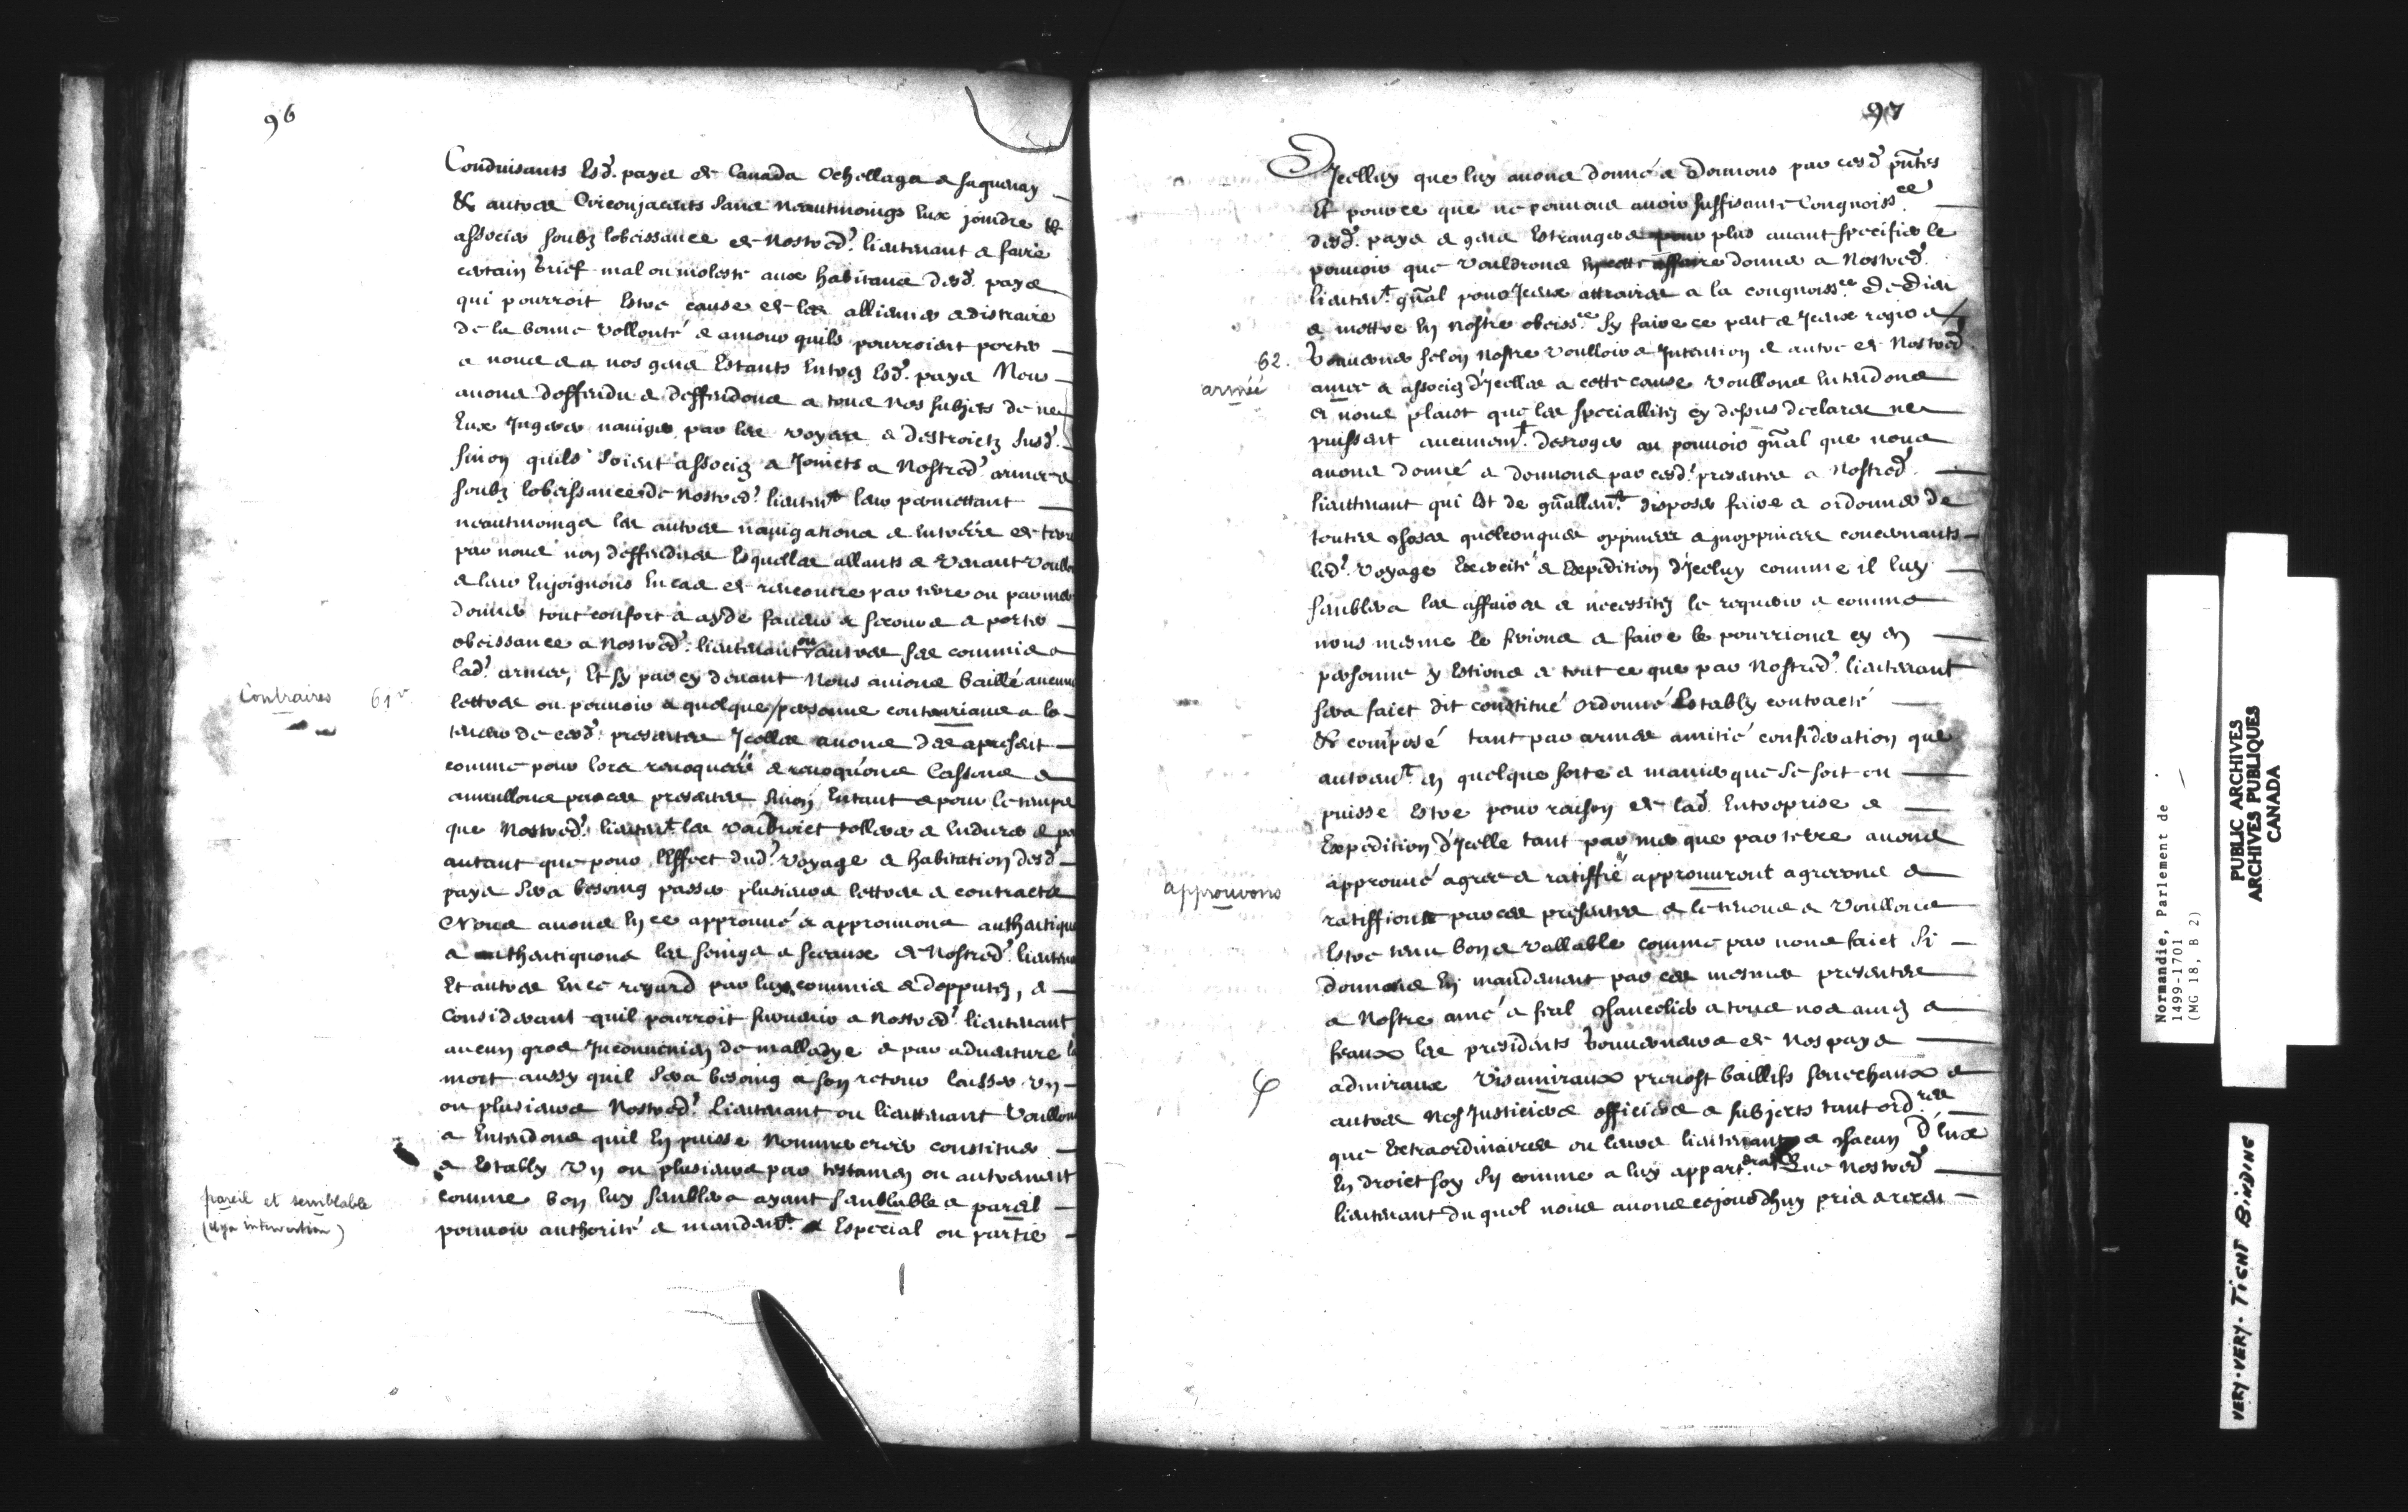 96
Conduisants esd. pays de Canada Ochellaga & Saguenay
& autres Circonjacents sans neautmoings Eux joindre &
associer soubz lobeissance de Nostred. lieutenant & faire
certain brief mal ou moleste aux habitans desd. pays
qui pourroit Estre cause de les alliener & distraire
de la bonne vollonté & amour quils pourroient porter
a nous & a nos gens Estants Entrez esd. pays Nous
avons deffendu & deffendons a tous nos subjets de ne
Eux Ingerer naviger par les voyes & destroictz susd.
sinon quils soient associez & Joincts a Nostred. armee &
soubz lobeissance de Nostred. lieutent leur permettant
neautmoings les autres navigations & Entrée de terre
par nous non deffendues Esquelles allants & venant voull
& leur Enjoignons En cas de rencontre par terre ou par mer
donner tout confort & ayde faveur & secours & porter
obeissance a Nostred. lieutenant ou autres ses commis a
lad. armee, Et sy par cy devant Nous avions baillé aucune
Contraires 61v
lettres ou pouvoir a quelque personne contrarians a la
teneur de cesd. presentes Jcelles avons des apresent
comme pour lors revoquées & revoquons Cassons &
annullons par ces presentes sinon Entant & pour le temps
que Nostred. lieutent les voudroict tollerer & Endurer &
autant que pour lEffect dud. voyage & habitation desd.
pays sera besoing passer plusieurs lettres & contracts
Nous avons En ce approuvé & approuvons authentique
& authentiquons les seings & sceaux de Nostred. lieuten
Et autres En ce regard par luy commis & depputez, &
Considerant quil pourroit survenir a Nostred. lieutenant
aucun gros Inconvenien de malladye & par adventure la
mort aussy quil sera besoing a son retour laisser un
ou plusieurs Nostred. Lieutenant ou lieuttenant Voullons
& Entendons quil En puisse Nommer creer constituer
& Establir un ou plusieurs par testamen ou autrement
comme bon luy semblera ayant semblable & pareil
pareil et semblable
(il y a interversion)
pouvoir authorité & mandemt. & Especial ou partie
97
D'Jcelluy que luy avons donné & Donnons par cesd. pntes
Et pour ce que ne pouvons avoir suffisante Congnoissce
desd. pays & gens Estrangers plus avant specifier le
pouvoir que vouldrions donner a Nostred.
lieutent. gnal pour Jceux attraire a la congnoissce. de Dieu
& mettre En nostre obeissce. Sy faire ce peut & Jceux regir &
62.
Gouverner selon nostre voulloir & Intention & autre de Nostred.
armée
amee & associez d'Jcelles a cette cause voullons Entendons
& nous plaist que les specialitez cy dessus declarees ne
puissent aucunemt. desroger au pouvoir gnal que nous
avons donné & donnons par cesd. presentes a Nostred.
lieuttenant qui Est de gnallemt. disposer faire & ordonner de
toutes choses quelconques oppinees & inoppinees concernants
led. voyage Exercité & Expedition d'Jceluy comme il luy
semblera les affaires & necessitez le requerir & comme
nous mesme le ferions & faire le pourrions sy En
personne y Estions & tout ce que par Nostred. lieutenant
sera faict dit constitué ordonné Estably contracté
& composé tant par armes amitié consideration que
autremt. en quelque sorte & maniere que ce soit ou
puisse Estre pour raison de lad. Entreprise &
Expedition d'Jcelle tant par mer que par terre avons
approuvé agreé & ratiffié approuvront agreons &
approuvons
ratiffions par ces presentes & le tenons & voullons
Estre tenu bon & vallable comme par nous faict si
donnons En mandement par ces mesmes presentes
a Nostre amé & feal Chancelier a tous nos amez &
feaux les presidents Gouverneurs de nos pays
admiraux visamiraux prevost baillifs senechaux &
autres nos Justiciers officiers & subjects tant ordres
que Extraordinaires ou leurs lieutenants & chacun d'Eux
En droict soy Sy comme a luy appartdra Que Nostred.
lieutenant du quel nous avons cejourdhuy pris & receu
Normandie, Parlement de
1499-1701
(MG 18, B 2)
PUBLIC ARCHIVES
ARCHIVES PUBLIQUES
CANADA
VERY-VERY-TIGHT BINDING